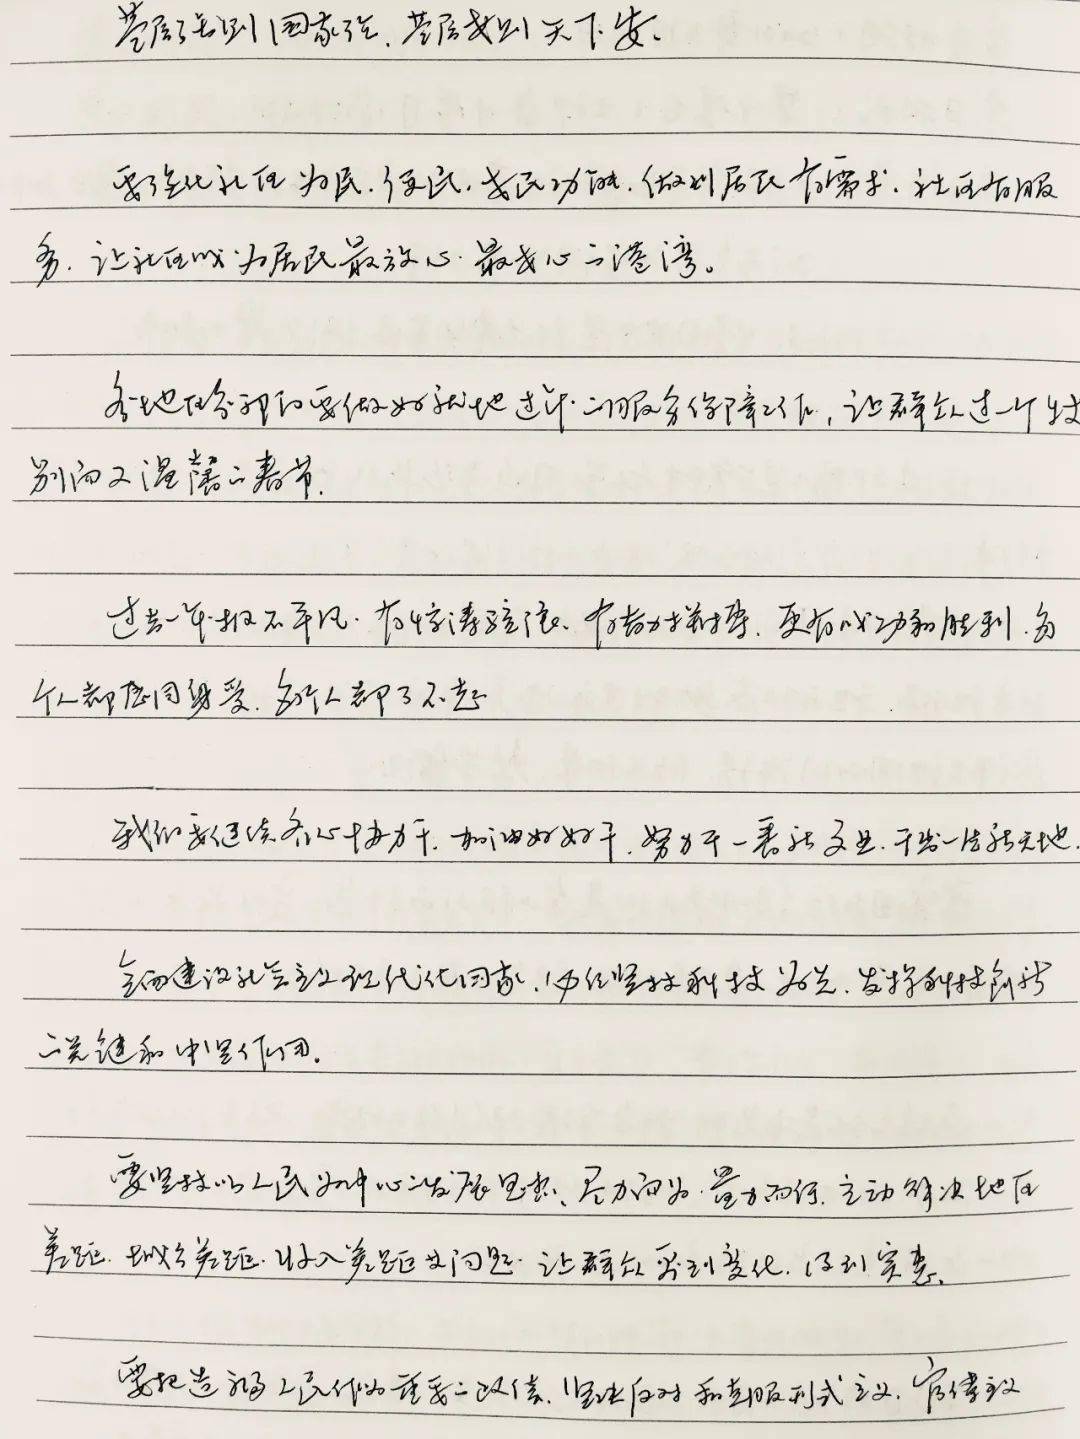 基层强则国家强,基层安则天下安。
要强化社区为民、便民、安民功能,做到居民有需求、社区有服
务,让社区成为居民最放心、最安心的港湾。
各地区各部门要做好就地过年的服务保障工作,让群众过一个特
别而又温馨的春节。
过去一年极不平凡,有惊涛骇浪、有奋力拼搏,更有成功和胜利,每
个人都感同身受,每个人都了不起
我们要继续齐心协力干,加油好好干,努力干一番新事业,干出一片新天地。
全面建设社会主义现代化国家,必须坚持科技为先,发挥科技创新
的关键和中坚作用。
要坚持以人民为中心的发展思想,尽力而为、量力而行,主动解决地区
差距、城乡差距、收入差距等问题,让群众看到变化、得到实惠。
要把造福人民作为重要的政绩,坚决反对和克服形式主义、官僚主义